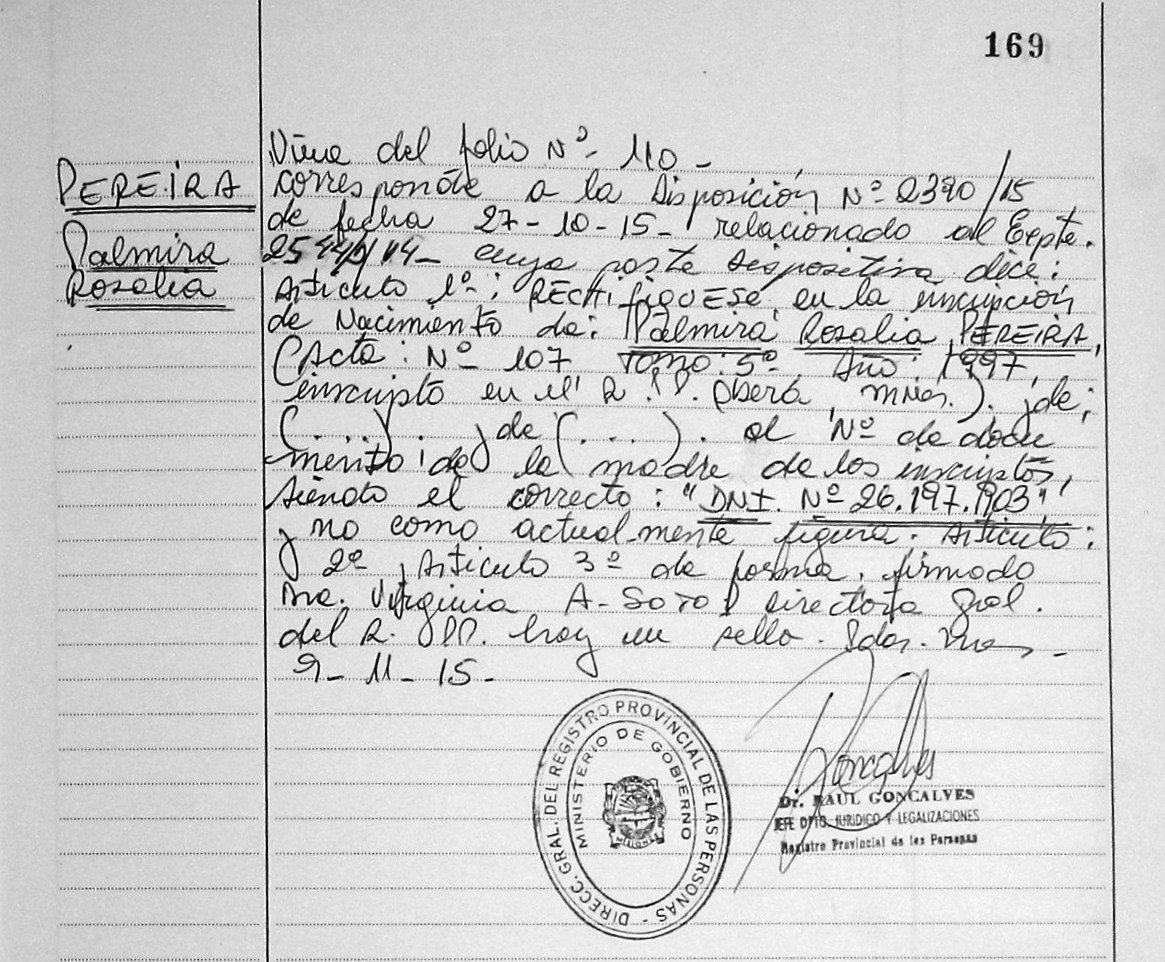 169
Viene del folio Nº- 110 -
PEREIRA
corresponde a la Disposición Nº 2390/15
de fecha 27-10-15- relacionado al Expte.
Palmira
cuya parte dispositiva dice:
Rosalia
Articulo 1º: RECTIFIQUESE en la inscripción
de Nacimiento de: Palmira Rosalia PEREIRA,
(Acta: Nº 107 Tomo: 5º. Año: 1997,
inscripto en el R.P. Oberá, Mnes.). y de;
(....). y de (....). el Nº de docu
mento de la madre de los inscriptos,
siendo el correcto: "DNI. Nº 26.197.903",
y no como actualmente figura. Articulo:
2º y Articulo 3º de forma. firmado
Dra. Virginia A. SOTO Directora Gral.
del R.PP. hay un sello. Pdas. Mnes -
9-11-15-
DIRECC. GRAL. DEL REGISTRO PROVINCIAL DE LAS PERSONAS
MINISTERIO DE GOBIERNO
MISIONES
Goncalves
Dr. RAUL GONCALVES
JEFE DPTO. JURIDICO Y LEGALIZACIONES
Registro Provincial de las Personas